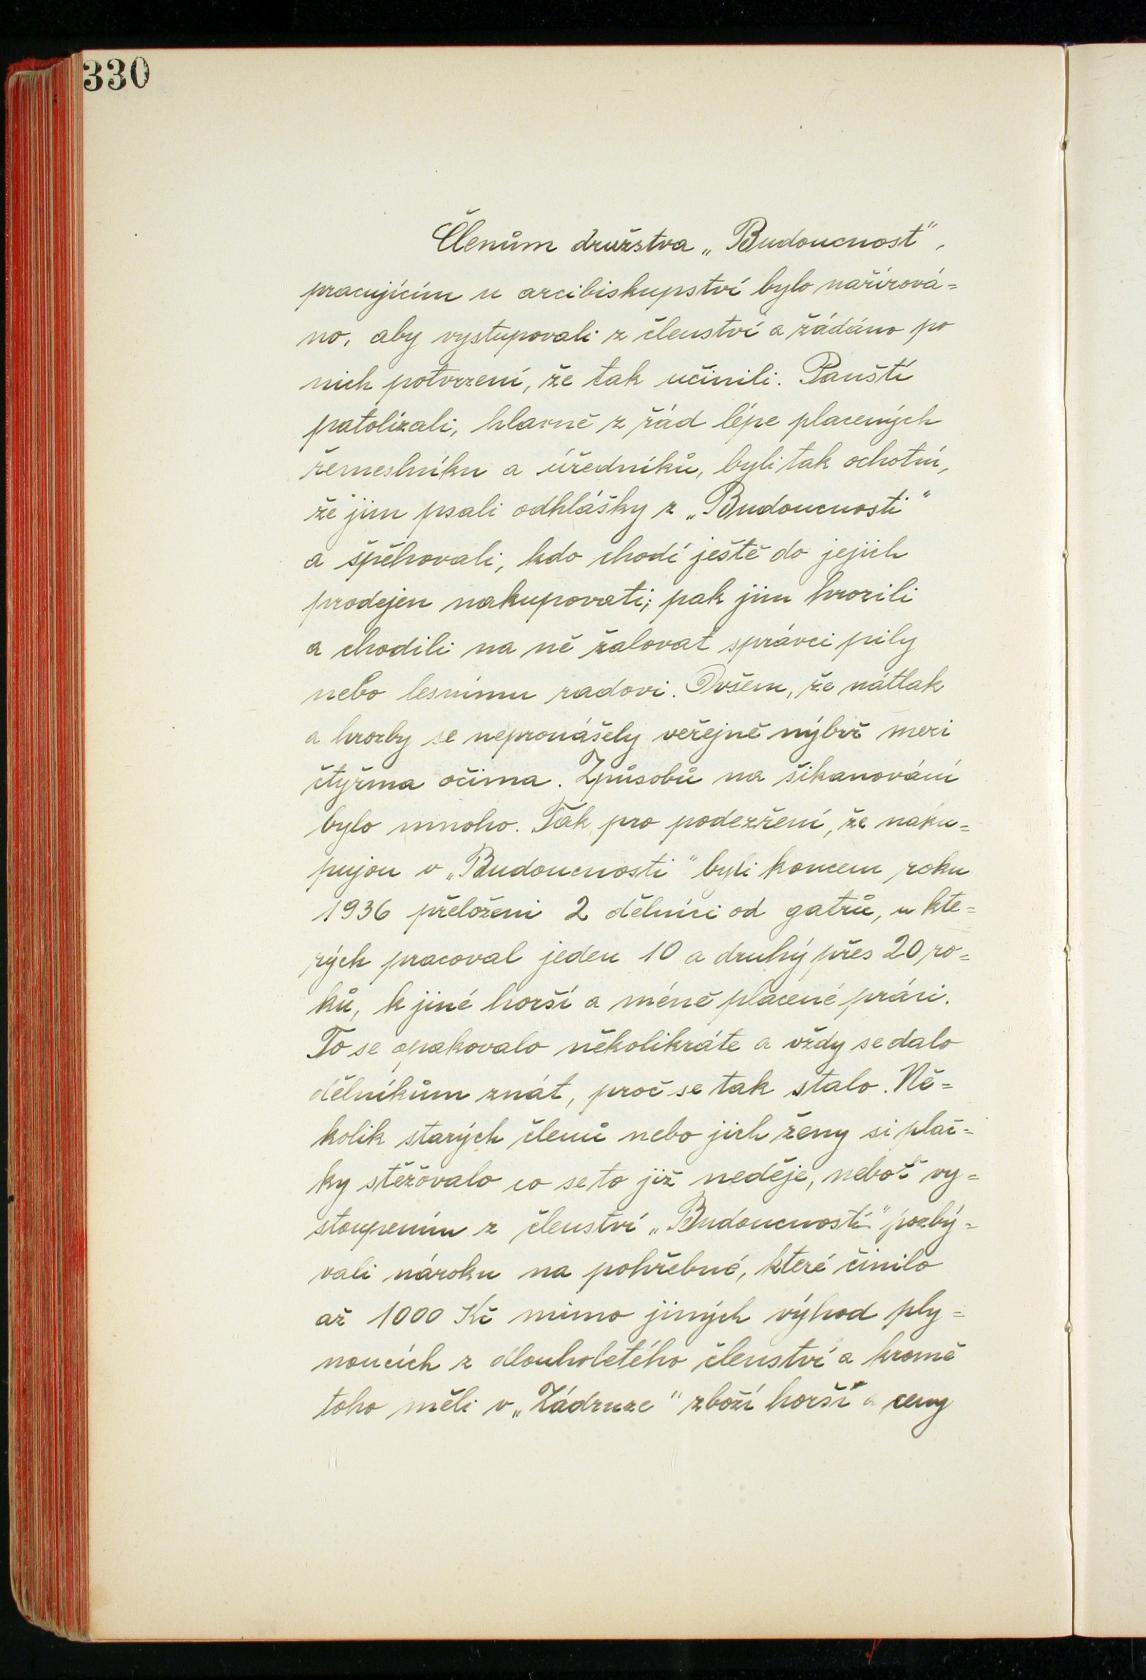 330
Členům družstva „Budoucnost",
pracujícím u arcibiskupství bylo nařizová-
no, aby vystupovali z členství a žádáno po
nich potvrzení, že tak učinili. Panští
patolízali, hlavně z řád lépe placených
řemeslníku a úředníků, byli tak ochotní,
že jim psali odhlášky z „Budoucnosti"
a špehovali, kdo chodí ještě do jejich
prodejen nakupovati; pak jim hrozili
a chodili na ně žalovat správci pily
nebo lesnímu radovi. Ovšem, že nátlak
a hrozby se nepronášely veřejně nýbrž mezi
čtyřma očima. Způsobů na šikanování
bylo mnoho. Tak pro podezření, že naku-
pujou v „Budoucnosti" byli koncem roku
1936 přeloženi 2 dělníci od gatrů, u kte-
rých pracoval jeden 10 a druhý přes 20 ro-
ků, k jiné horší a méně placené práci.
To se opakovalo několikráte a vždy se dalo
dělníkům znát, proč se tak stalo. Ně-
kolik starých členů nebo jich ženy si plač-
ky stěžovalo co se to již neděje, neboť vy-
stoupením z členství „Budoucnosti" pozbý-
vali nároku na pohřebné, které činilo
až 1000 Kč mimo jiných výhod ply-
noucích z dlouholetého členství a kromě
toho měli v „Zádruze" zboží horší a ceny